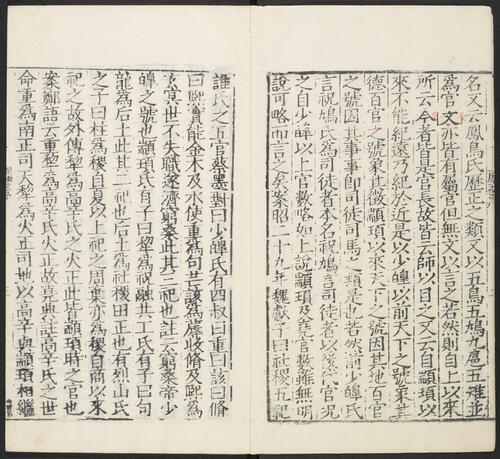 名又云鳳鳥氏歷正之類又以五鳥五鳩九扈五雉並
爲官文亦皆有屬官但無文以言之若然則自上以來
所云今者皆是官長故皆云師以目之又云自顓頊以
來不能紀遠乃紀於近是以少皥以前天下之號象其
德百官之號象其徵顓頊以來天下之號因其地百官
之號因其事事即司徒司馬之類是也若然前少皥氏
言祝鳩氏爲司徒者本名祝鳩言司徒者以後代官況
之自少皥以上官數略如上說顓頊及堯官數雖無明
說可略而言之矣案昭二十九年魏獻子曰社稷五祀
誰氏之五官蔡墨對曰少皥氏有四叔曰重曰該曰脩
曰熙實能金木及水使重爲句芒該爲蓐收脩及熙爲
玄冥世不失職遂濟窮桑此其三祀也註云窮桑帝少
皥之號也顓頊氏有子曰黎爲祝融共工氏有子曰句
龍爲后土此其二祀也后土爲社稷田正也有烈山氏
之子曰柱爲稷自夏以上祀之周棄亦爲稷自商以來
祀之故外傳犂爲高辛氏之火正此皆顓頊時之官也
案鄭語云重黎爲高辛氏火正故堯典註高辛氏之世
命重爲南正司天犂爲火正司地以高辛與顓頊相繼